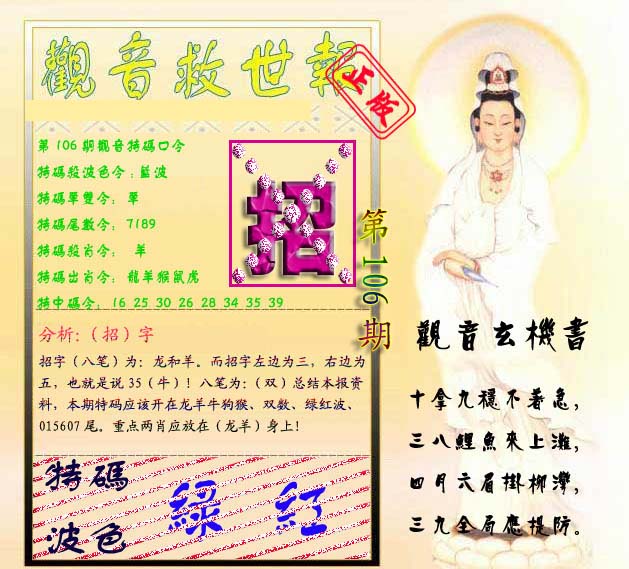 觀音救世報
正版
第106期觀音特碼口令
特碼殺波色令：藍波
特碼單雙令： 單
特碼尾數令： 7189
特碼殺肖令： 羊
特碼出肖令： 龍羊猴鼠虎
特中碼令： 16 25 30 26 28 34 35 39
招
第106期
分析:（招）字
招字（八笔）为：龙和羊。而招字左边为三，右边为
五，也就是说 35（牛）！八笔为：（双）总结本报资
料，本期特码应该开在龙羊牛狗猴、双数、绿红波、
015607 尾。重点两肖应放在（龙羊）身上！
特碼
波色
綠 紅
觀音玄機書
十拿九穩不著急，
三八鯉魚來上灘，
四月六眉掛柳灣，
三九全局應提防。